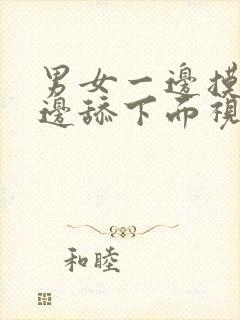 男女一邊摸
邊舔下面視
和睦